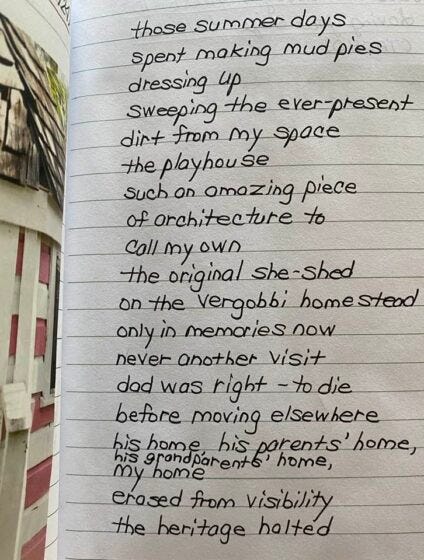 those summer days
spent making mud pies
dressing up
sweeping the ever-present
dirt from my space
the playhouse
such an amazing piece
of architecture to
call my own
the original she-shed
on the Vergobbi homestead
only in memories now
never another visit
dad was right - to die
before moving elsewhere
his home, his parents' home,
his grandparents' home,
my home
erased from visibility
the heritage halted